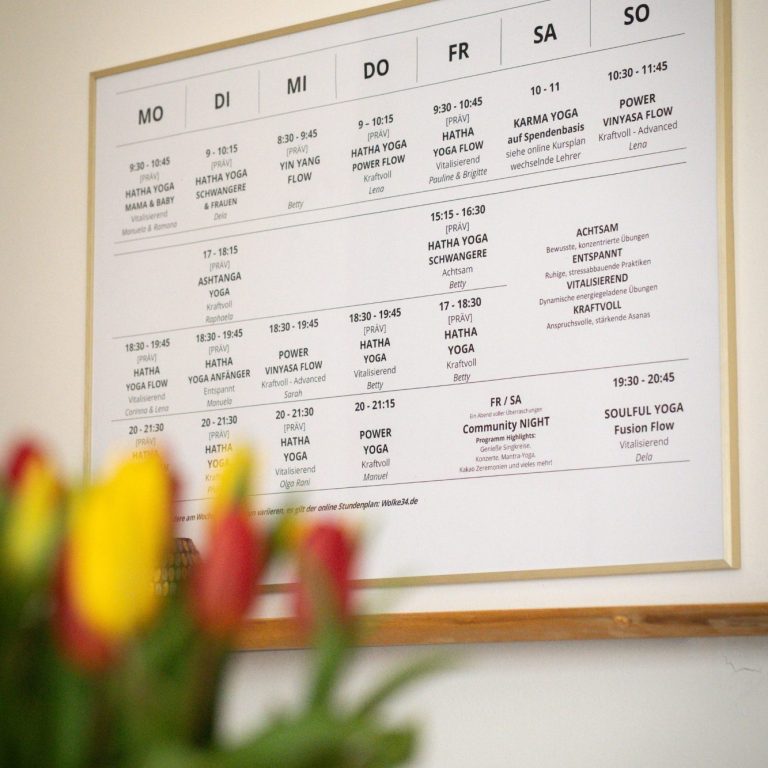 MO
DI
MI
DO
FR
SA
SO
9:30 - 10:45
[PRÄV]
HATHA YOGA
MAMA & BABY
Vitalisierend
Manuela & Ramona
9 - 10:15
[PRÄV]
HATHA YOGA
SCHWANGERE
& FRAUEN
Dela
8:30 - 9:45
[PRÄV]
YIN YANG
FLOW
Betty
9 – 10:15
[PRÄV]
HATHA YOGA
POWER FLOW
Kraftvoll
Lena
9:30 - 10:45
[PRÄV]
HATHA
YOGA FLOW
Vitalisierend
Pauline & Brigitte
10 - 11
KARMA YOGA
auf Spendenbasis
siehe online Kursplan
wechselnde Lehrer
10:30 - 11:45
POWER
VINYASA FLOW
Kraftvoll - Advanced
Lena
17 - 18:15
[PRÄV]
ASHTANGA
YOGA
Kraftvoll
Raphaela
15:15 - 16:30
[PRÄV]
HATHA YOGA
SCHWANGERE
Achtsam
Betty
ACHTSAM
Bewusste, konzentrierte Übungen
ENTSPANNT
Ruhige, stressabbauende Praktiken
VITALISIEREND
Dynamische energiegeladene Übungen
KRAFTVOLL
Anspruchsvolle, stärkende Asanas
18:30 - 19:45
[PRÄV]
HATHA
YOGA FLOW
Vitalisierend
Corinna & Lena
18:30 - 19:45
[PRÄV]
HATHA
YOGA ANFÄNGER
Entspannt
Manuela
18:30 - 19:45
POWER
VINYASA FLOW
Kraftvoll - Advanced
Sarah
18:30 - 19:45
[PRÄV]
HATHA
YOGA
Vitalisierend
Betty
17 - 18:30
[PRÄV]
HATHA
YOGA
Kraftvoll
Betty
20 - 21:30
[PRÄV]
HATHA
20 - 21:30
[PRÄV]
HATHA
YOGA
20 - 21:30
[PRÄV]
HATHA
YOGA
Vitalisierend
Olga Rani
20 - 21:15
POWER
YOGA
Kraftvoll
Manuel
FR / SA
Ein Abend voller Überraschungen
Community NIGHT
Programm Highlights:
Genieße Singkreise,
Konzerte, Mantra-Yoga,
Kakao Zeremonien und vieles mehr!
19:30 - 20:45
SOULFUL YOGA
Fusion Flow
Vitalisierend
Dela
variieren, es gilt der online Stundenplan: Wolke34.de